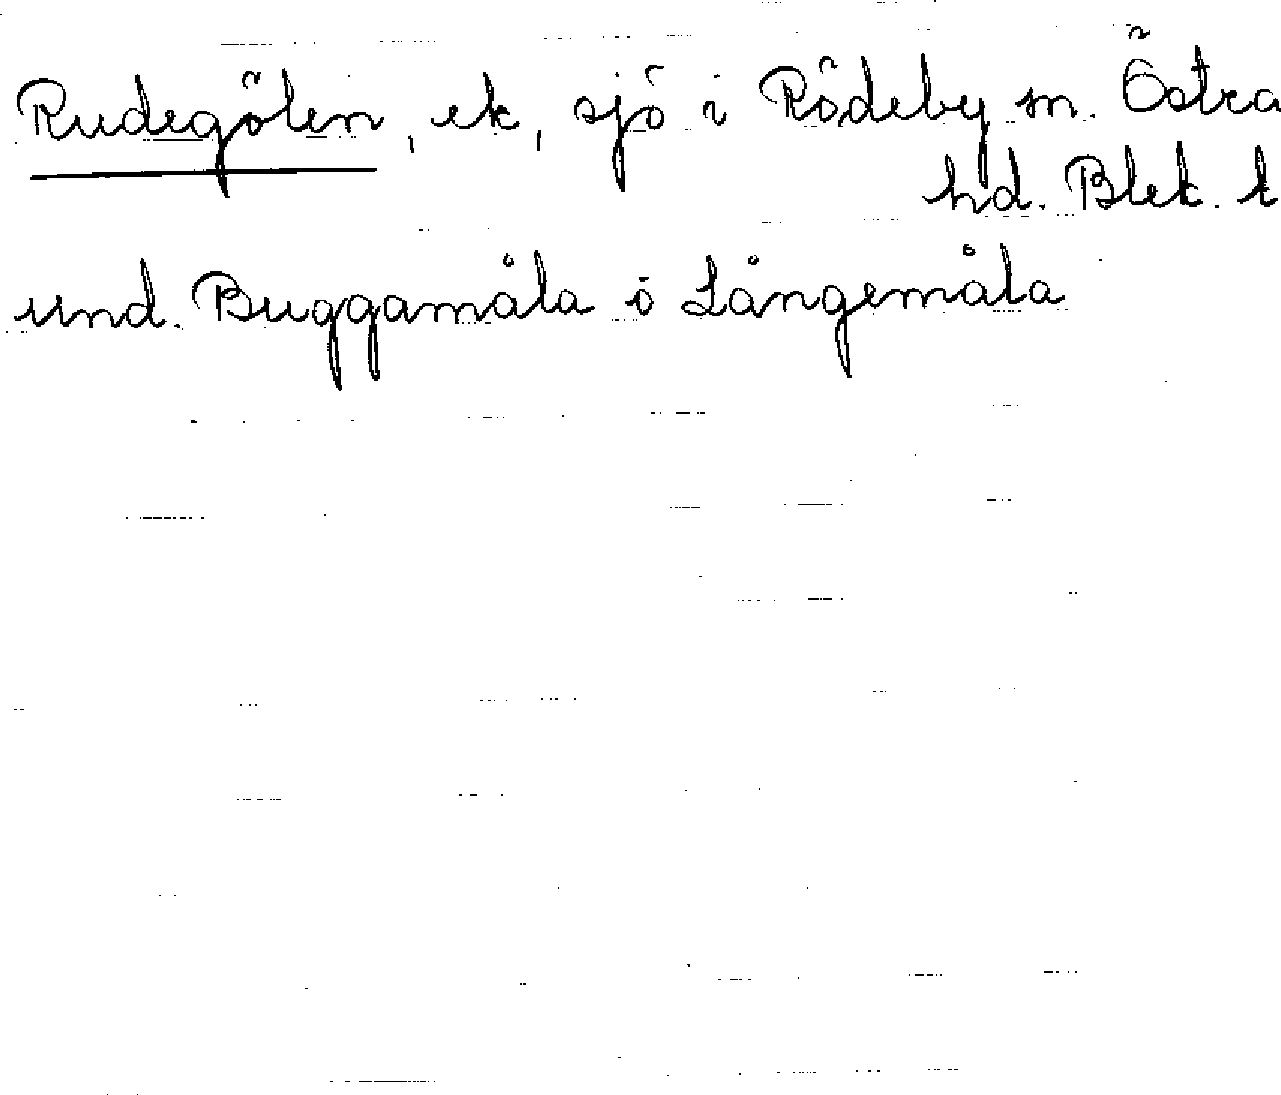 Rudegölen, ek, sjö i Rödeby sn. Östra
hd. Blek. l
und. Buggamåla o Långemåla